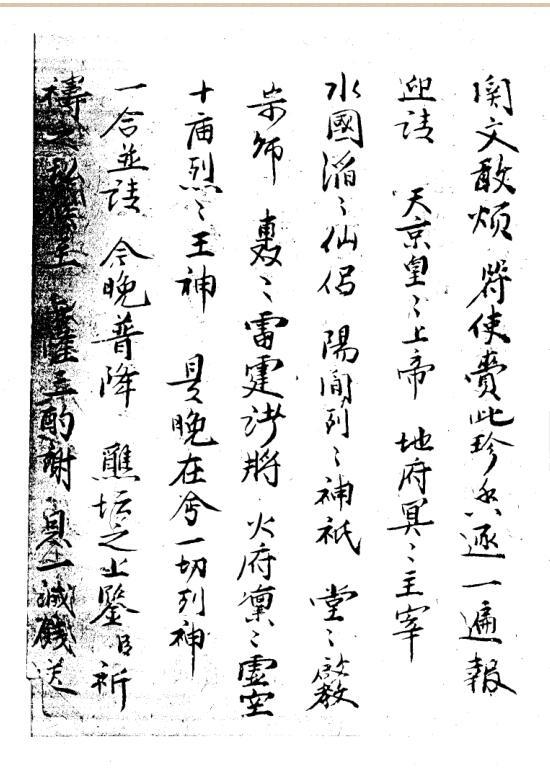 関文敢煩 符使賫此珍香逐一遍報
迎請 天京皇〻上帝 地府冥〻主宰
水國滔〻仙侶 陽間列〻神祇 堂〻啟教
宗師 轟〻雷霆諸將 火府凛〻虛空
十庙烈〻王神 是晚在兮一切列神
一合並請 今晚普降 醮坛之上鑒日祈
禱之 酌谢 一誠餞送